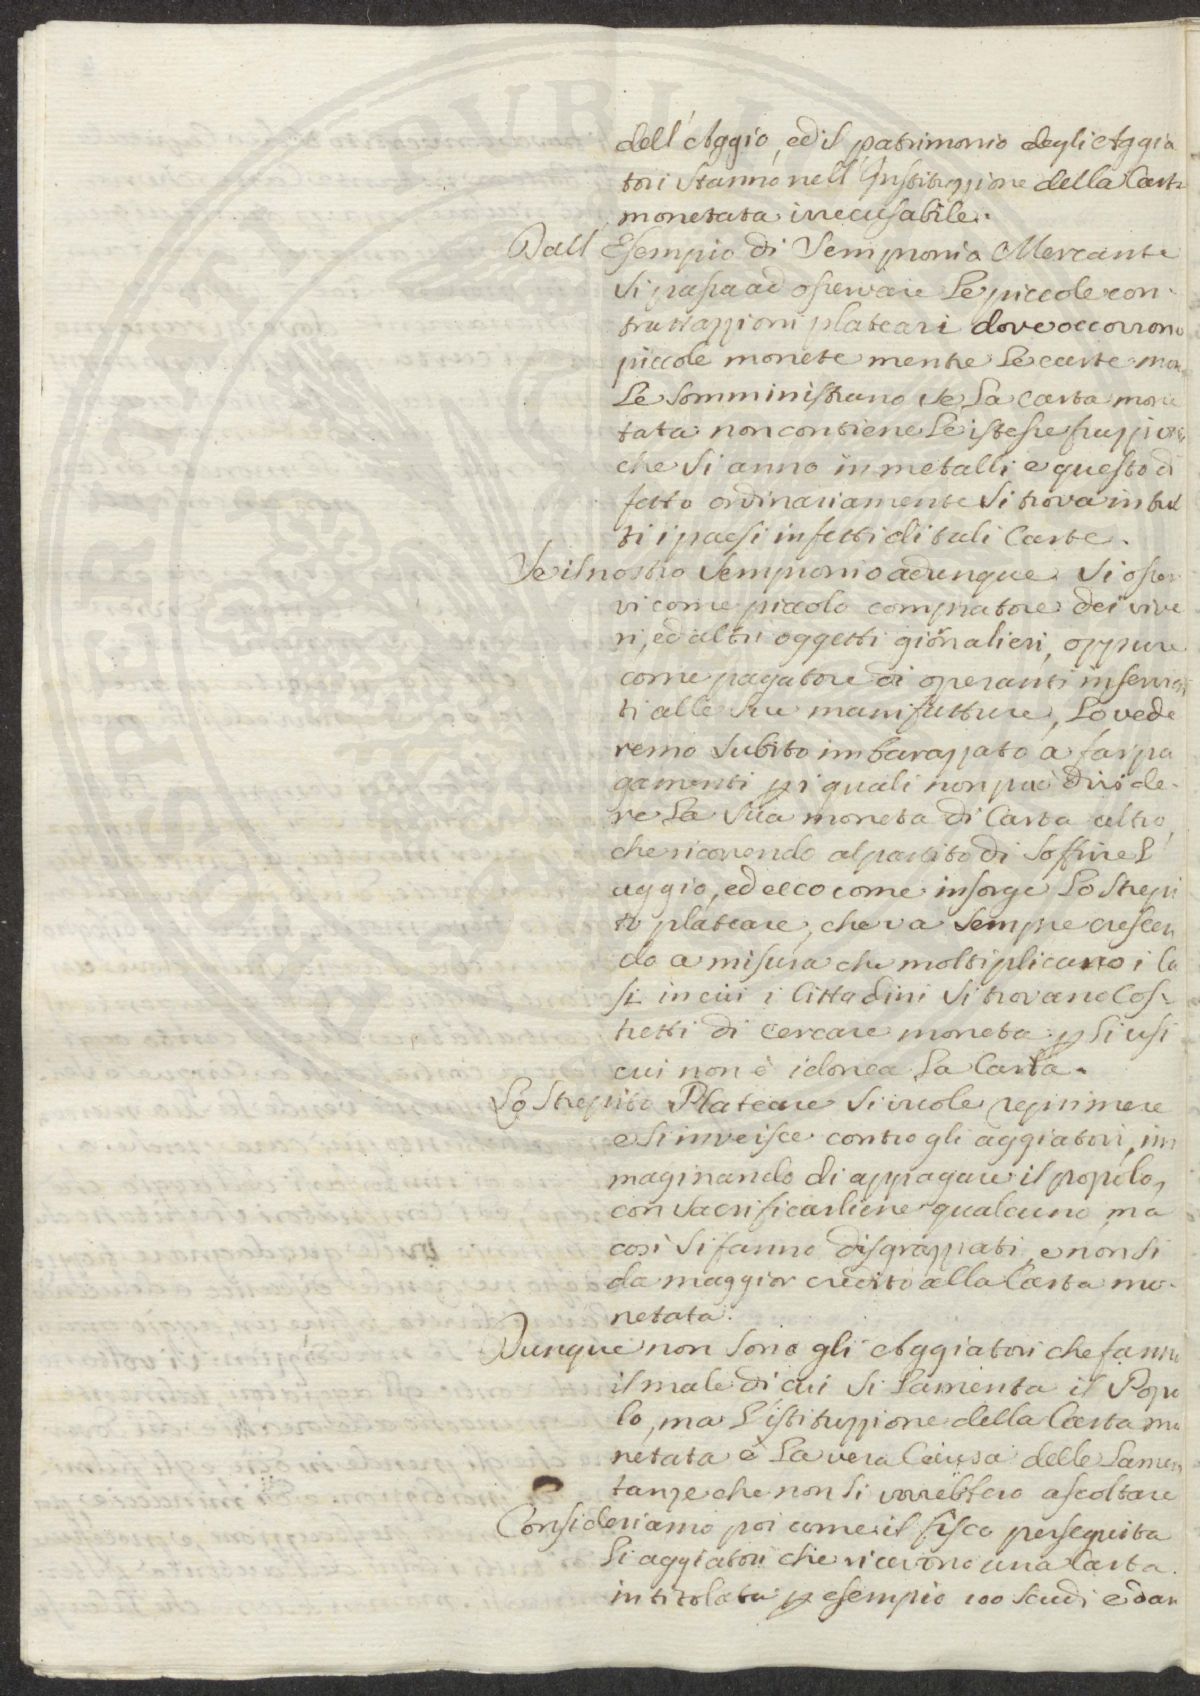 dell'Aggio, ed il patrimonio degli Aggia
tori stanno nell'Instituzzione della Carta
monetata irrecusabile.
Dall'Esempio di Sempronio Mercante
si passa ad osservare le piccole con-
trattazzioni plateari dove occorrono
piccole monete mentre le carte non
le somministrano se la carta mone
tata non contiene le istesse frazzioni
che si anno in metalli e questo di
fetto ordinariamente si trova in tut
ti i paesi infetti di tali Carte.
Se il nostro Sempronio adunque si osser
vi come piccolo compratore dei vive
ri, ed altri oggetti giornalieri, oppure
come pagatore di operanti inservien
ti alle sue manifatture, lo vede
remo subito imbarazzato a far pa
gamenti p i quali non può divide-
re la sua moneta di Carta altro
che ricorrendo al partito di soffrire l'
aggio, ed ecco come insorge lo strepi
to plateare, che va sempre crescen
do a misura che moltiplicano i ca
si in cui i Cittadini si trovano Cos-
tretti di cercare moneta p li usi
cui non è idonea la Carta.
Lo Strepito Plateare si vuole reprimere
e si inveisce contro gli aggiatori, im
maginando di appagare il popolo,
con sacrificarliene qualcuno, ma
così si fanno disgrazziati, e non si
da maggior credito alla Carta mo-
netata.
Dunque non sono gli Aggiatori che fanno
il male di cui si lamenta il Popo
lo, ma l'istituzzione della Carta mo
netata è la vera Causa delle lamen
tanze che non si vorrebbero ascoltare
Consideriamo poi come il fisco perseguita
li aggiatori che ricevono una Carta
intitolata p esempio 100 scudi e dan